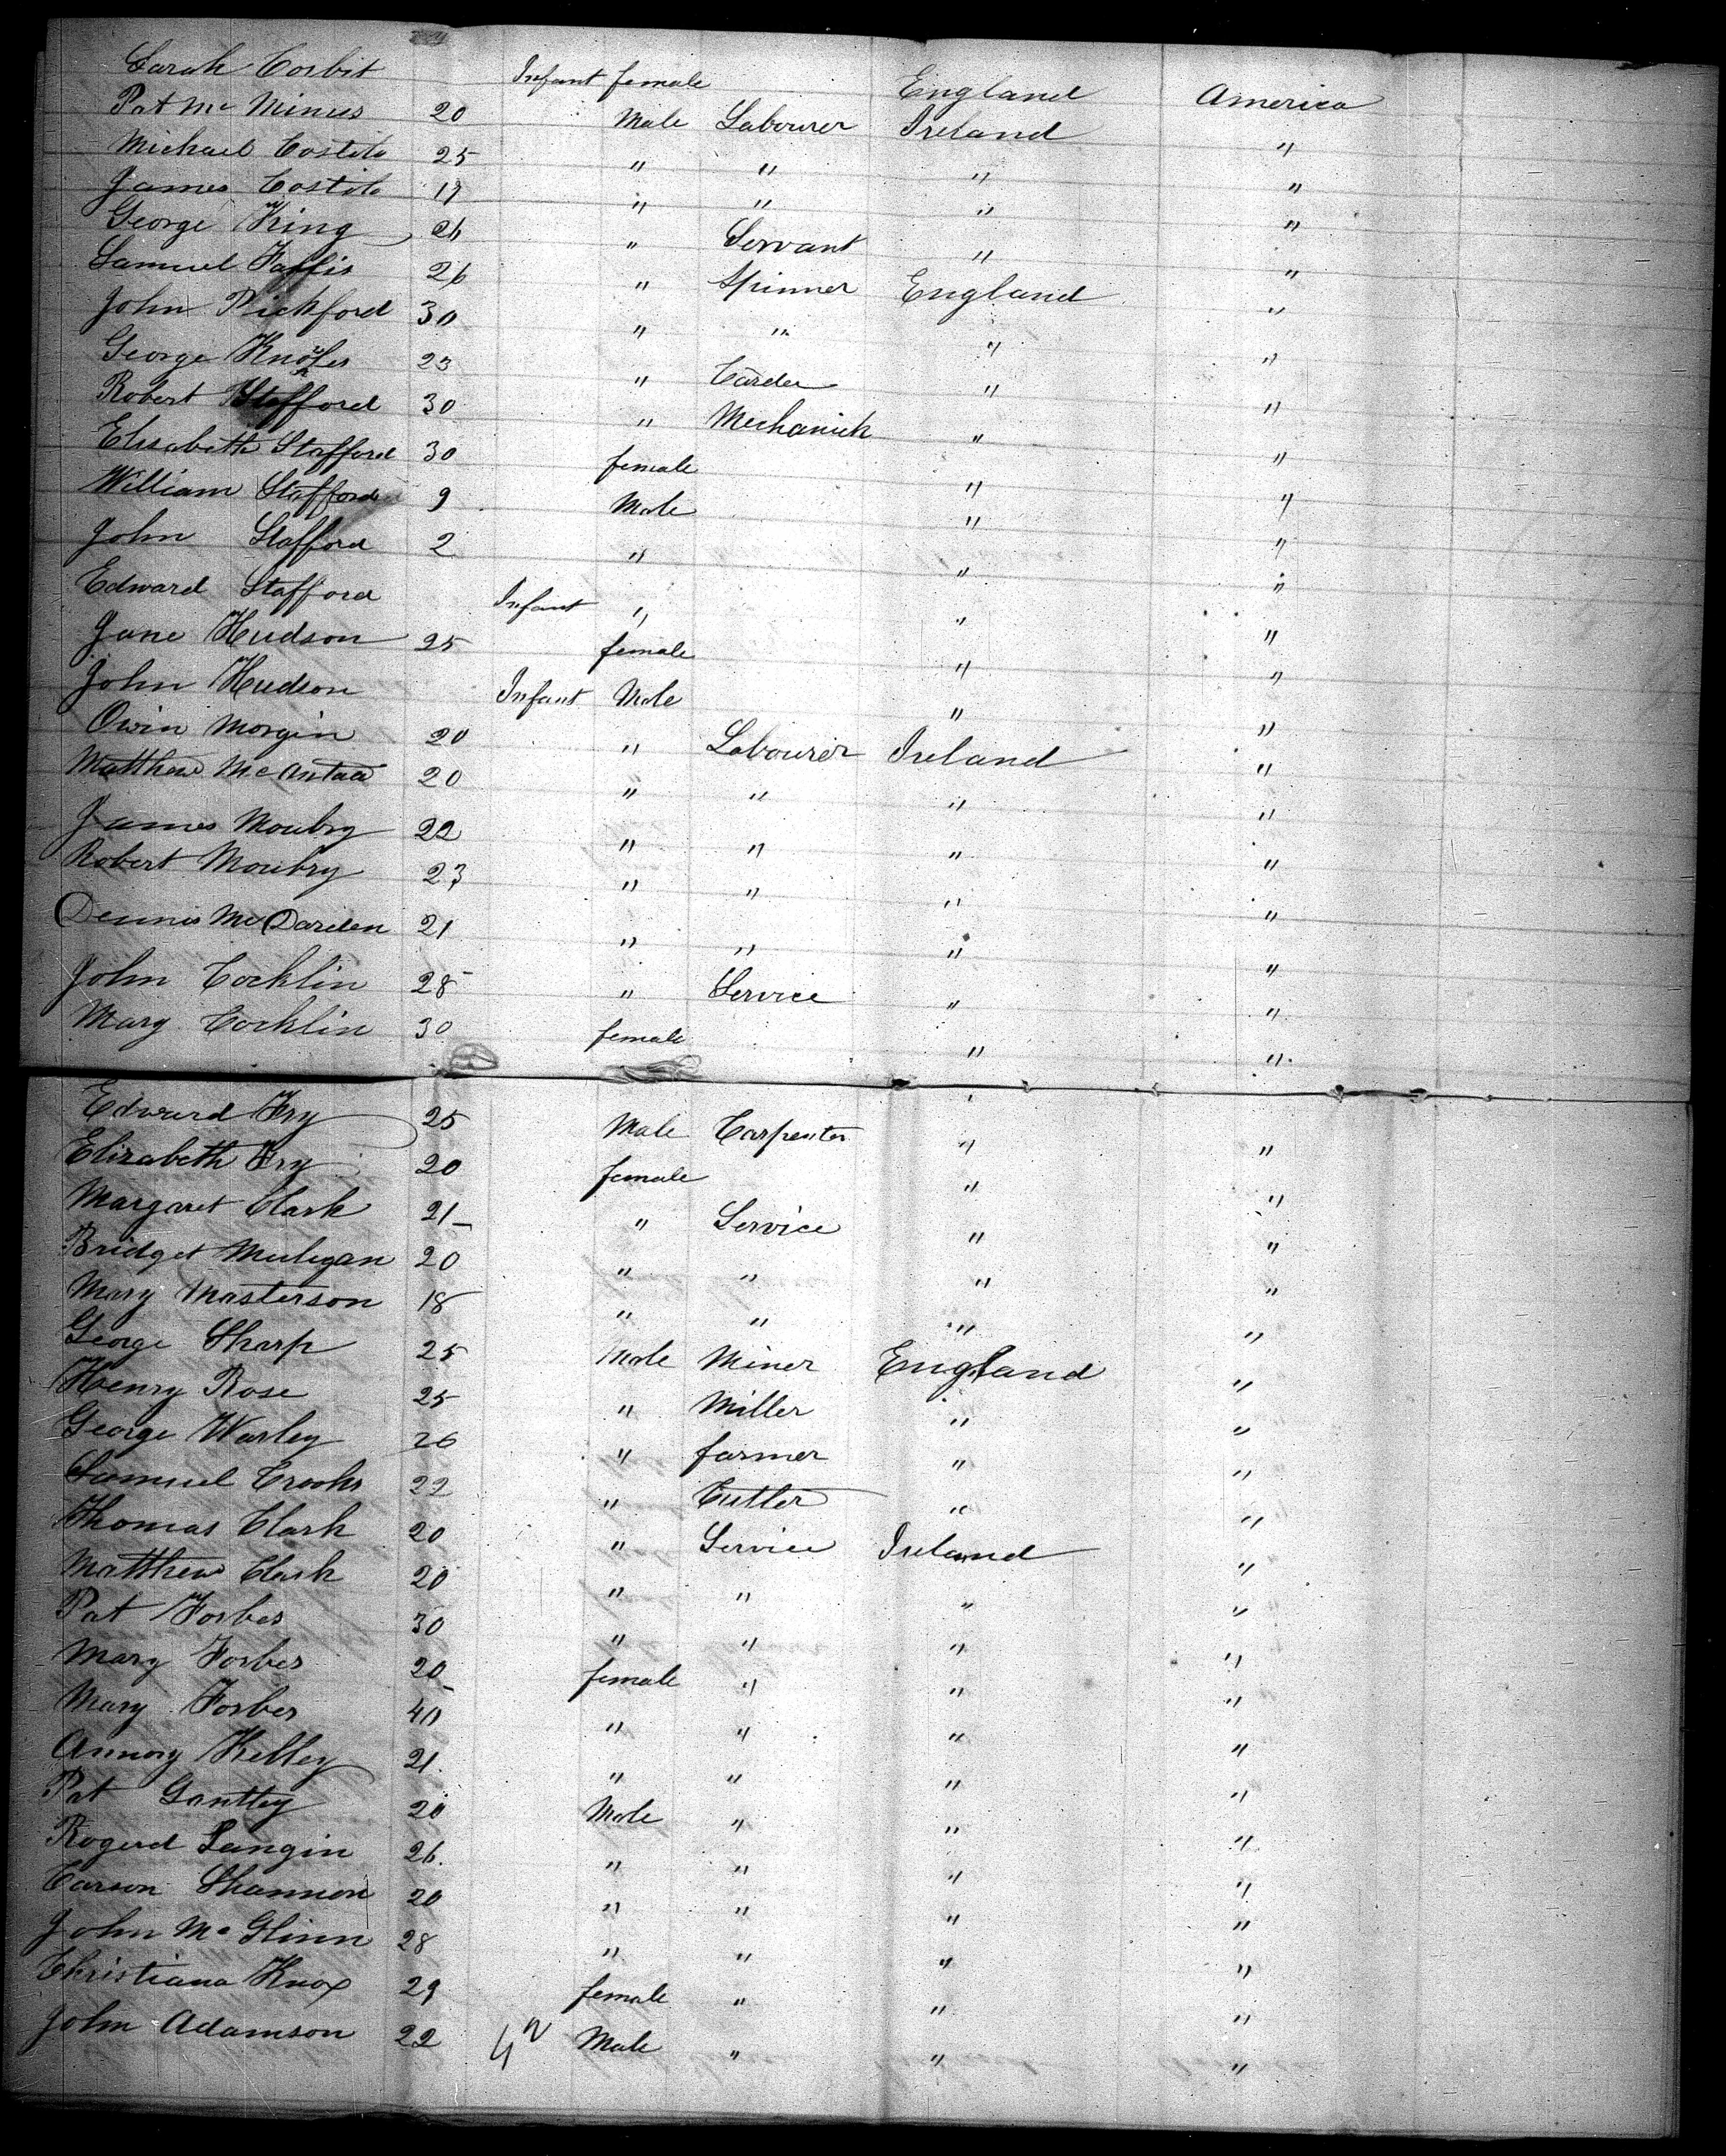 Sarah Corbit Infant female England America
Pat Mc Minus 20 Male Labourer Ireland "
Michael Costilo 25 " " " "
James Costilo 19 " " " "
George King 26 " Servant " "
Samuel 26 " Spinner England "
John Pickford 30 " " " "
George 23 " Carder " "
Robert Stafford 30 " Mechanick " "
Elisabeth Stafford 30 female " "
William Stafford 9 Male " "
John Stafford 2 " " "
Edward Stafford Infant " " "
Jane Hudson 25 female " "
John Hudson Infant Male " "
Owin Morgin 20 " Labourer Ireland "
Matthew 20 " " " "
James Moubry 22 " " " "
Robert Moubry 23 " " " "
Dennis Mc Darden 21 " " " "
John Cocklin 28 " Service " "
Mary Cocklin 30 female " "
Edward Fry 25 Male Carpenter " "
Elizabeth Fry 20 female " "
Margaret Clark 21 " Service " "
Bridget Muligan 20 " " " "
Mary Masterson 18 " " " "
George Sharp 25 Male Miner England "
Henry Rose 25 " Miller " "
George Warley 26 " farmer " "
Samuel Crooks 22 " Cutler " "
Thomas Clark 20 " Service Ireland "
Matthew Clark 20 " " " "
Pat Forbes 30 " " " "
Mary Forbes 20 female " " "
Mary Forbes 40 " " " "
Annory Kelley 21 " " " "
Pat Gantley 20 Male " " "
Rogerd Langin 26 " " " "
Carson Shannon 20 " " " "
John Mc Glinn 28 " " " "
Christiana Knox 29 female " " "
John Adamson 22 Male " " "